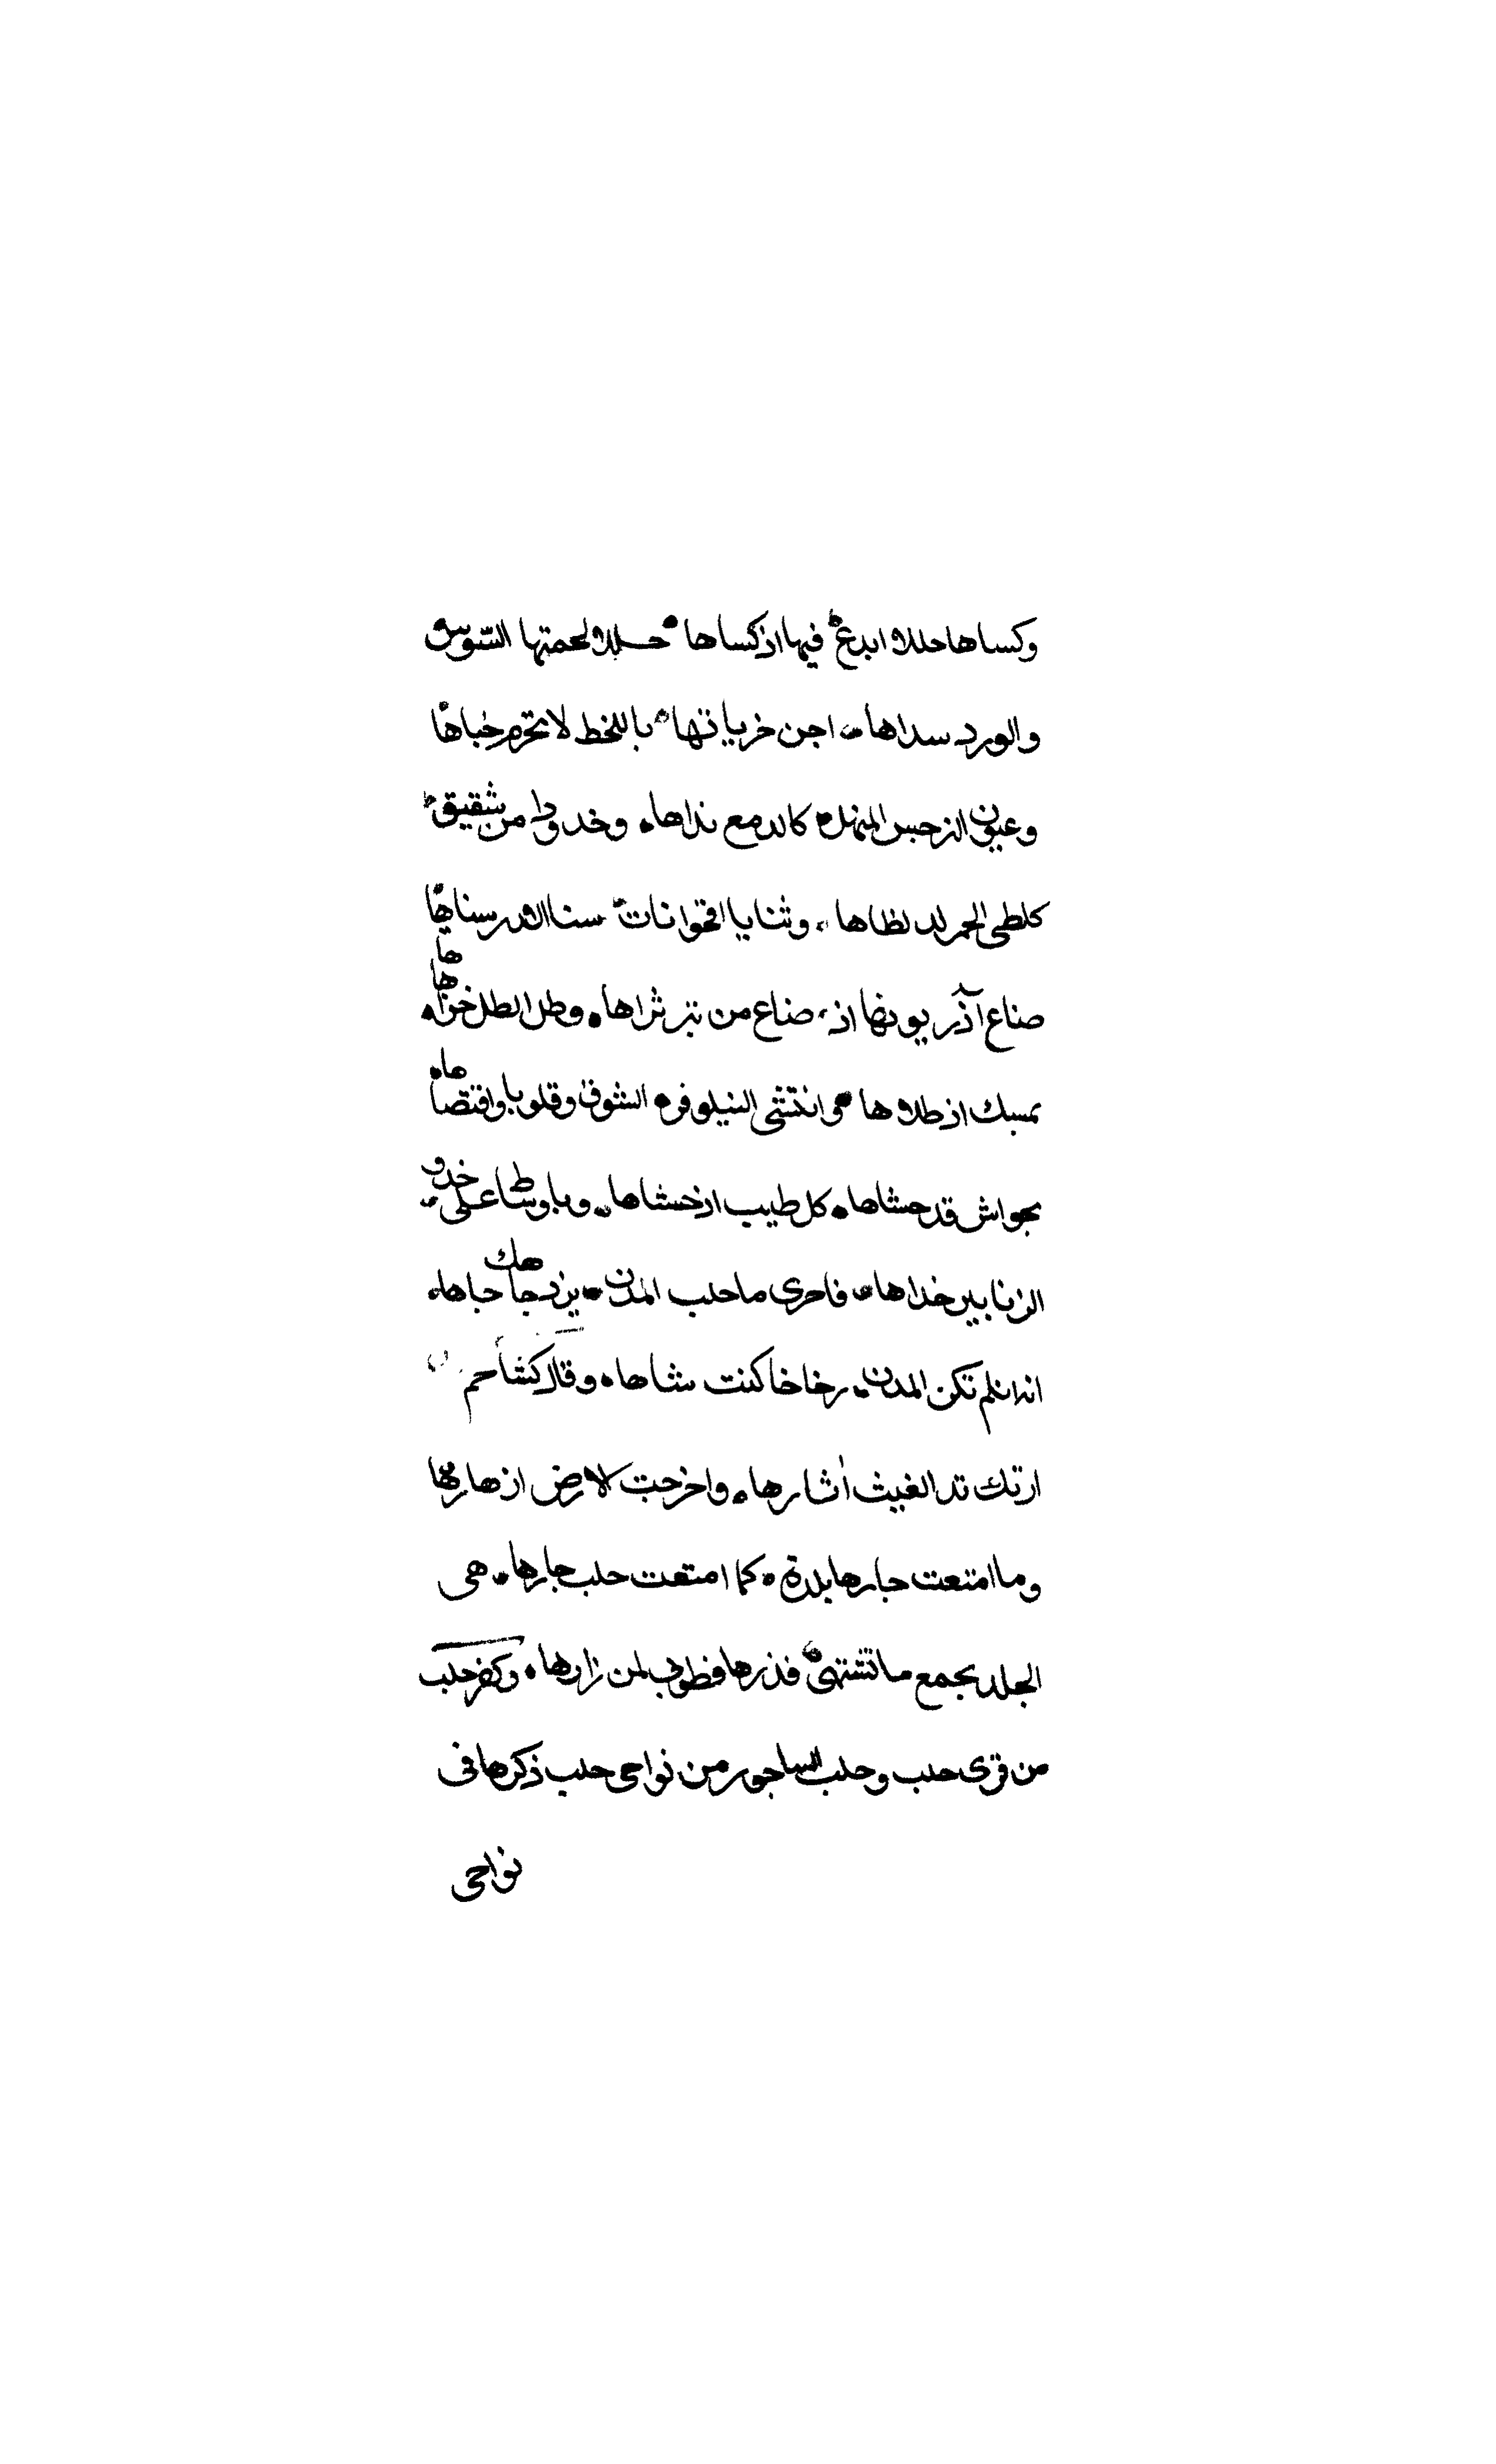 وكساها حللا ابدع فيها اذ كساها حللا لحمتها السوس
والورد سداها اجن خرياتها باللخط لا تحرم جباها
وعيون النرجس المنهل كالدمع نداها وخدودا من شقيق
كلظى الجمر لد لظاها وثنايا اقحوانات سنا الدر سناها
صناع آذريونها اذ صناع من تبر ثراها وطل الطل خزاما ها
بمسك اذ طلاها وانتشى النيلوفر الشوق وقلوبا واقتضا ها
بحواش قد حشاها كل طيب اذ خشاها وباوساط على خدو
الزنابير خداها فاحرى ما حلب المدن يزد جاهك جاها
انه ان لم تكن المدن رخاخا كنت شاها وقال كشاحم
ارتك ند الغيث أثارها واخرجت لارض ازهارها
وما امتعت جارها بلدة كما امتعت حلب جارها هى
الجلد بجمع ما تشتهى فذرها فطوبى لمن زارها وكفر حلب
من قرى حلب وحلب الساجور من نواحى حلب ذكرها فى
نواحى